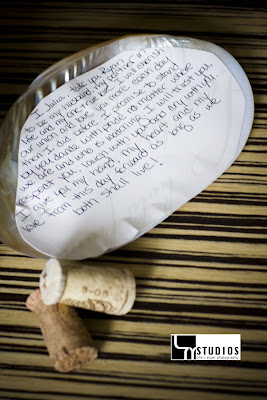 I Julia, take you Ryan
to be my husband, my partner in
life and my one true love. I will cherish
our union and love you more each day
than I did before. I promise to stand
by you with pride no matter where
we are and who is watching. I will trust you,
respect you, laugh with you and cry with you.
I give you my hand, my heart and my
love from this day forward as long as we
both shall live!
8-09
STUDIOS
life + style photography